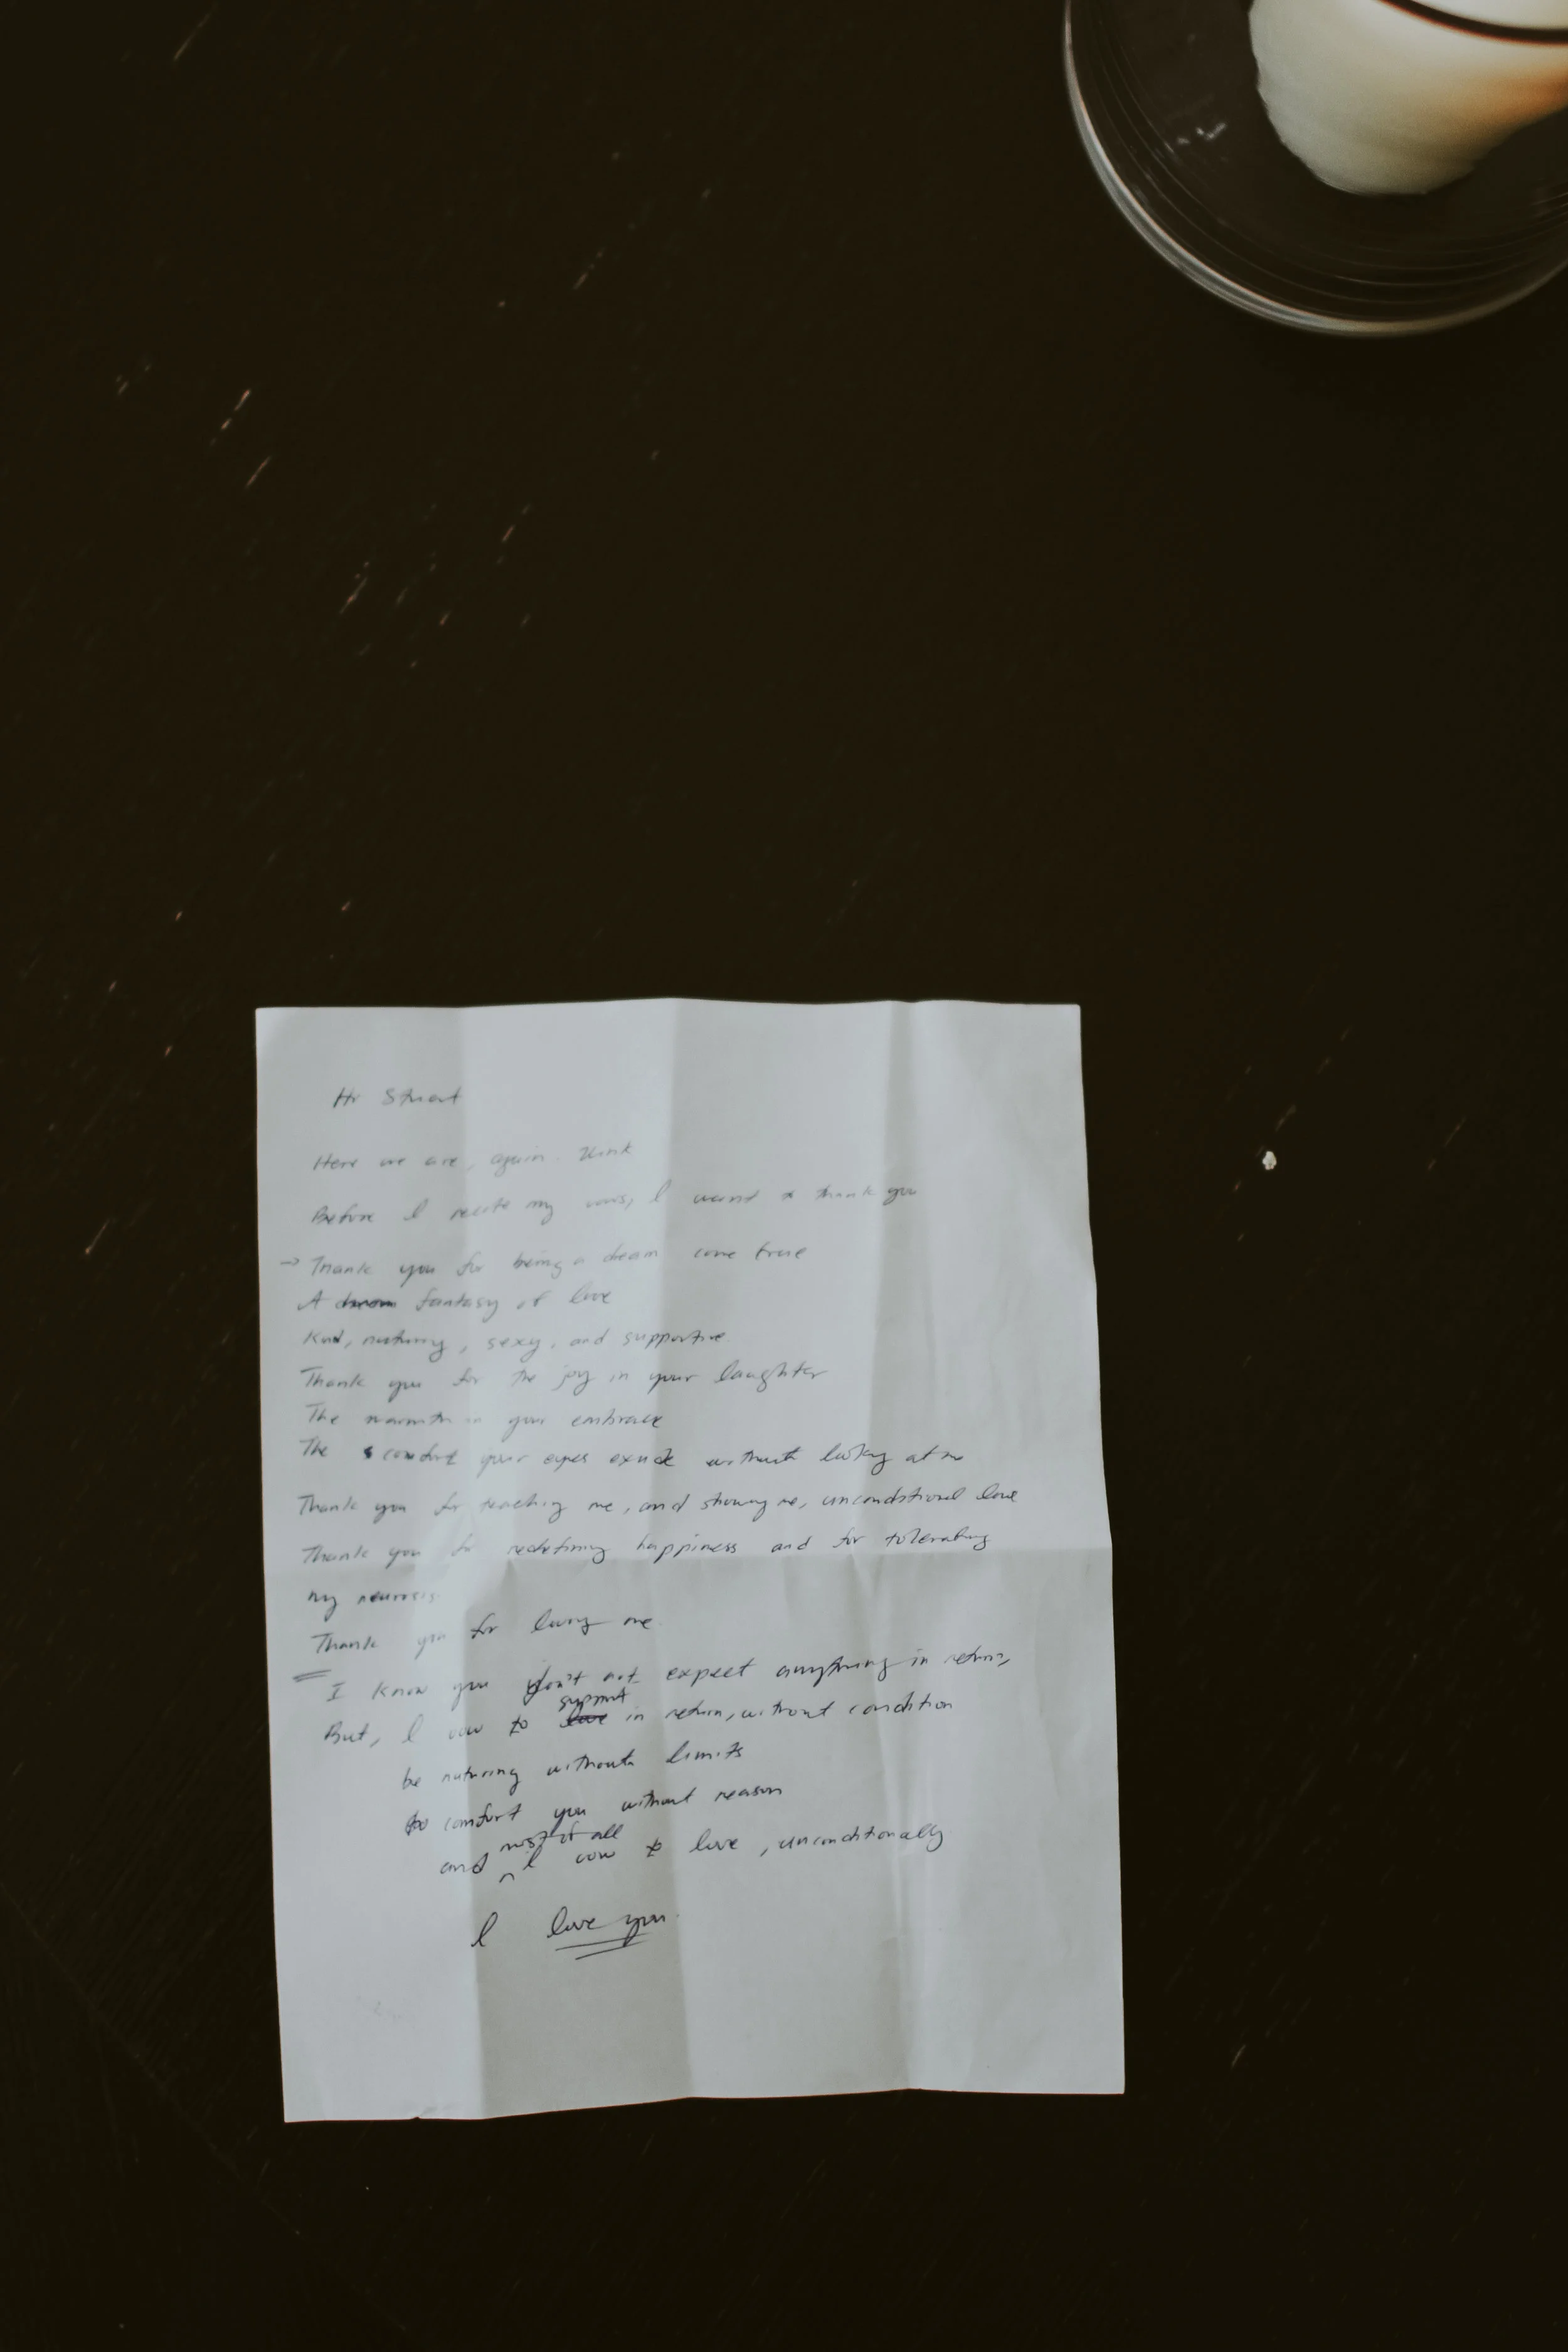 Hi Stuart
Here we are, again.
Before I recite my vows, I want to thank you
→ Thank you for being a dream come true
A fantasy of love
Kind, nurturing, sexy, and supportive.
Thank you for the joy in your laughter
The warmth in your embrace
The comfort your eyes exude without looking at me
Thank you for teaching me, and showing me, unconditional love
Thank you for redefining happiness and for tolerating
my neurosis.
Thank you for loving me.
I know you don't not expect anything in return,
support
But, I vow to love in return, without condition
be nuturing without limits
to comfort you without reason
most of all
and I vow to love, unconditionally
I love you.